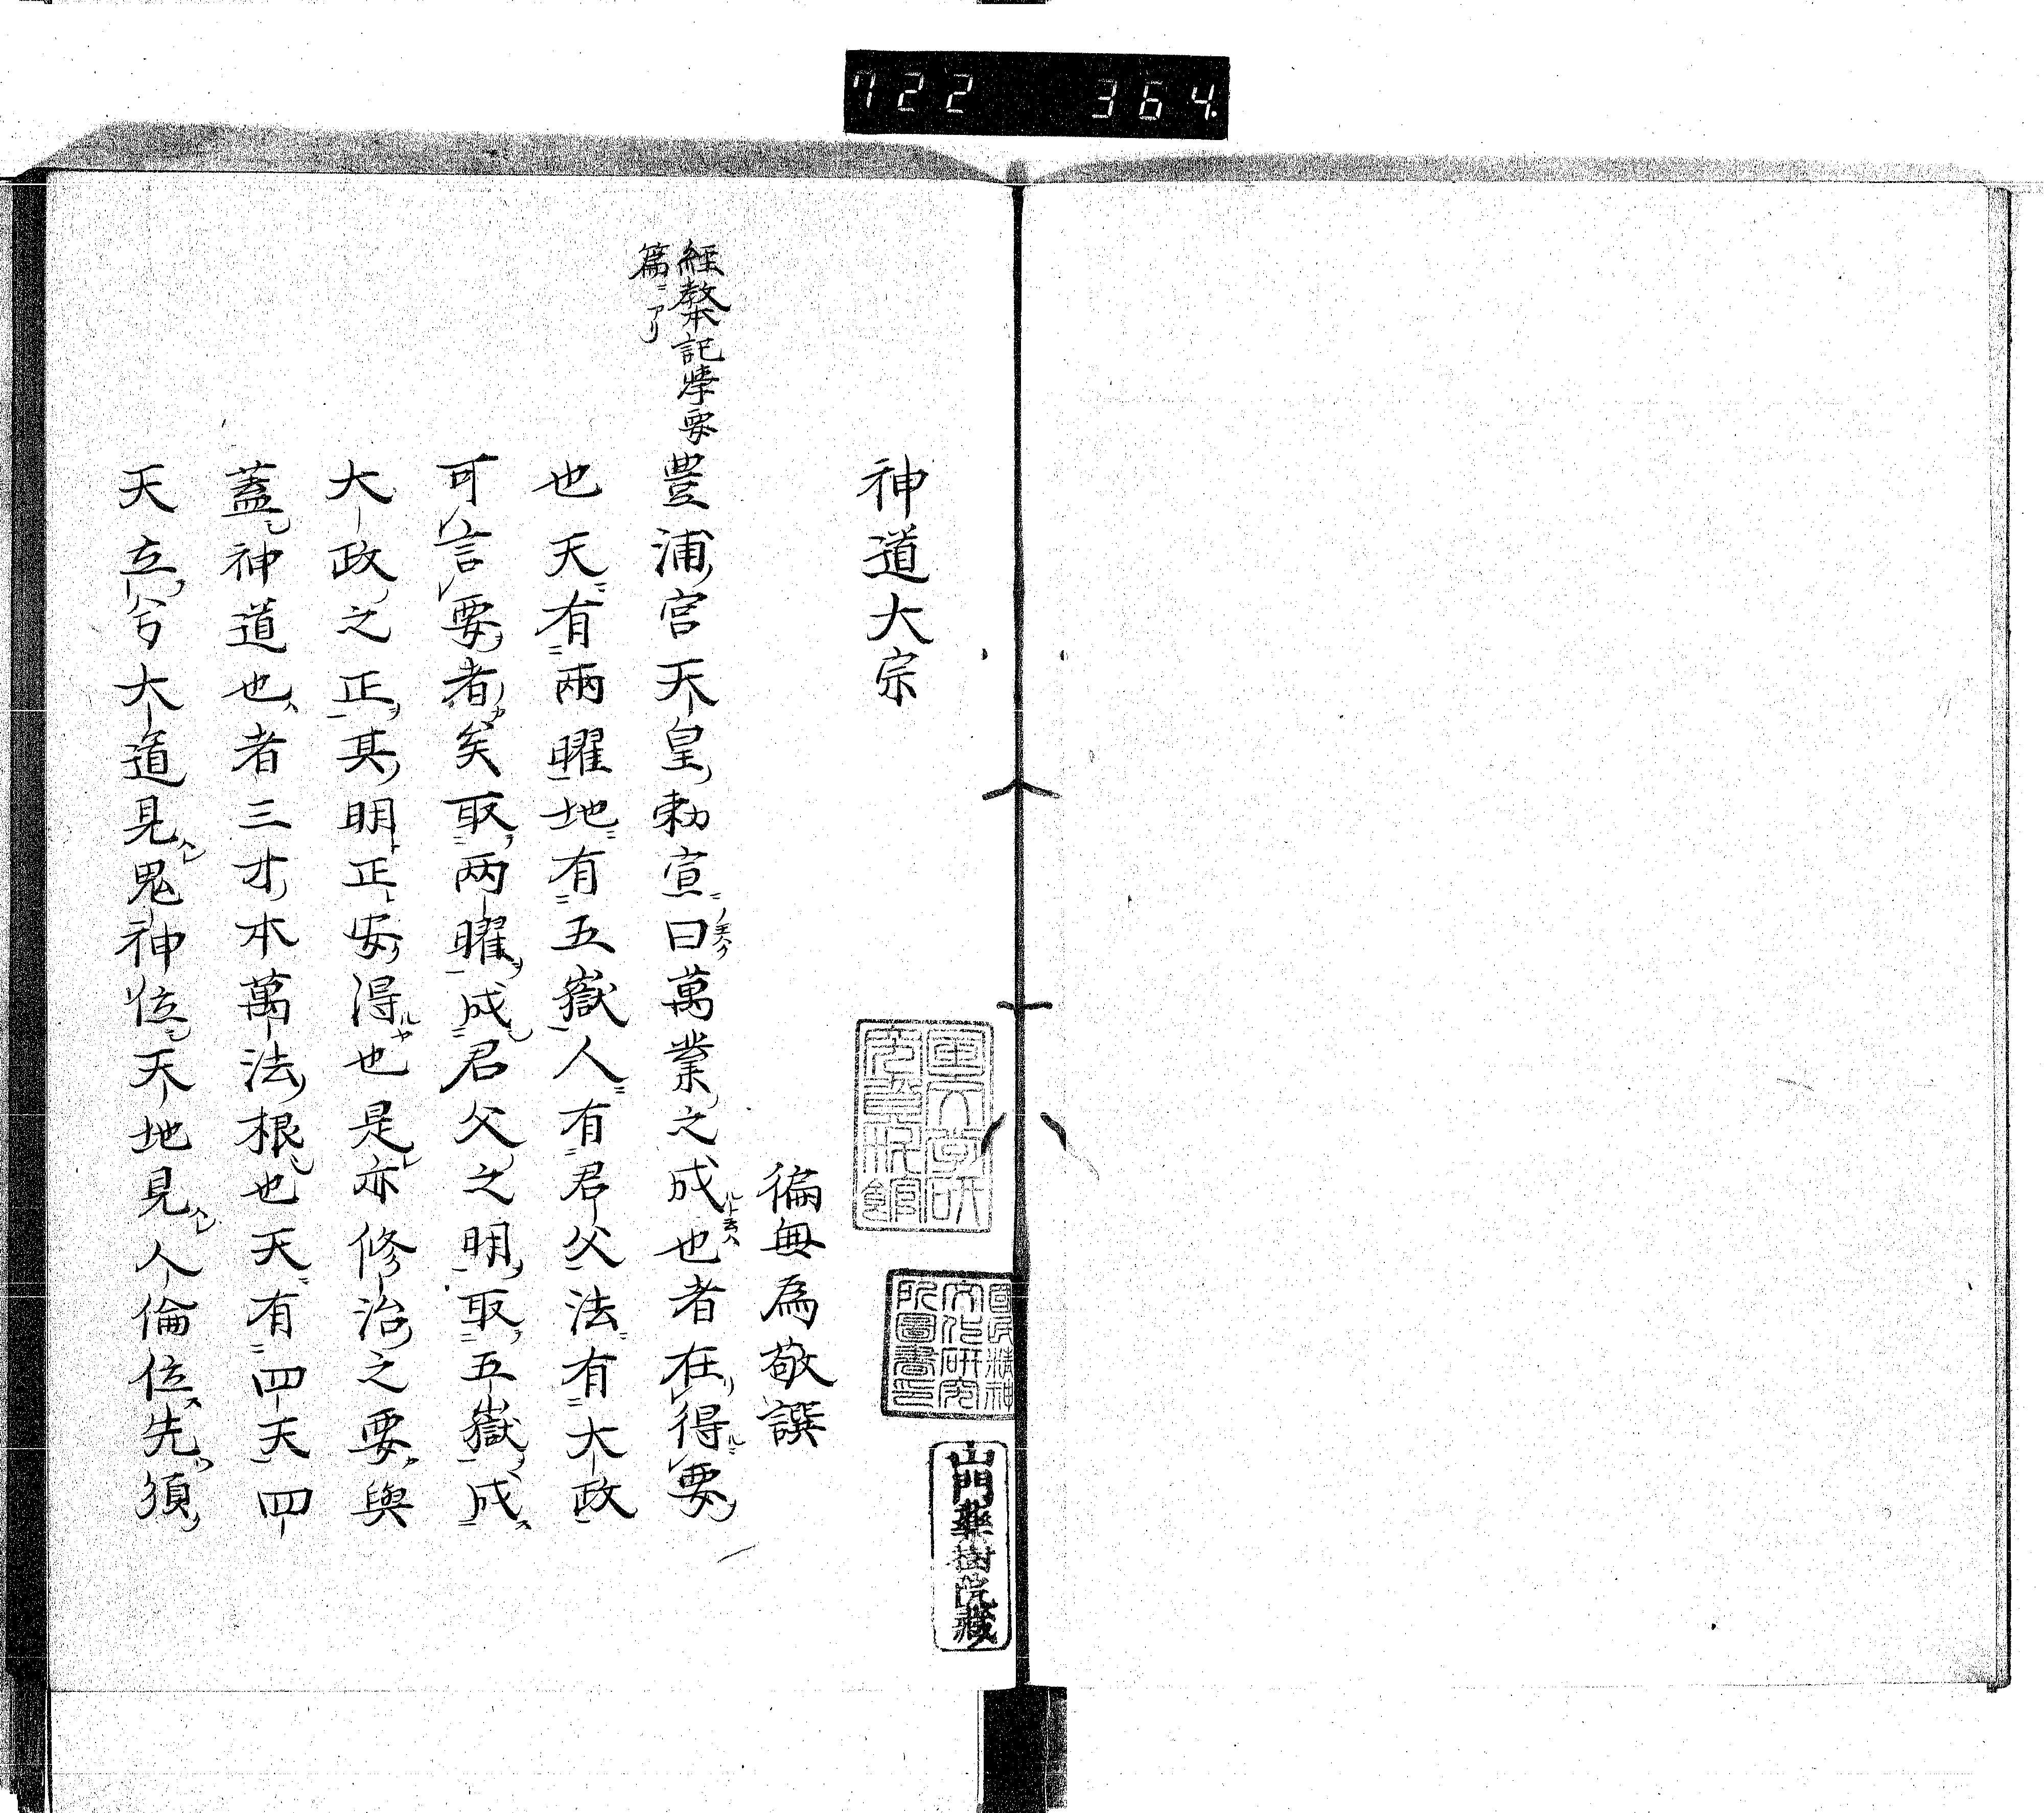 722 364.
神道大宗
徧無為敬譔
經教本記學要
篇ニアリ
豊浦宮天皇勅宣曰萬業之成也者在得要
也天有兩曜地有五嶽人有君父法有大政
可言要者矣取両曜成君父之明取五嶽成
大政之正其明正安得也是亦修治之要與
蓋神道也者三才本萬法根也天有四天四
天立兮大道見鬼神位天地見人倫位先須
國民精神
文化研究
所圖書印
山門藥樹院藏